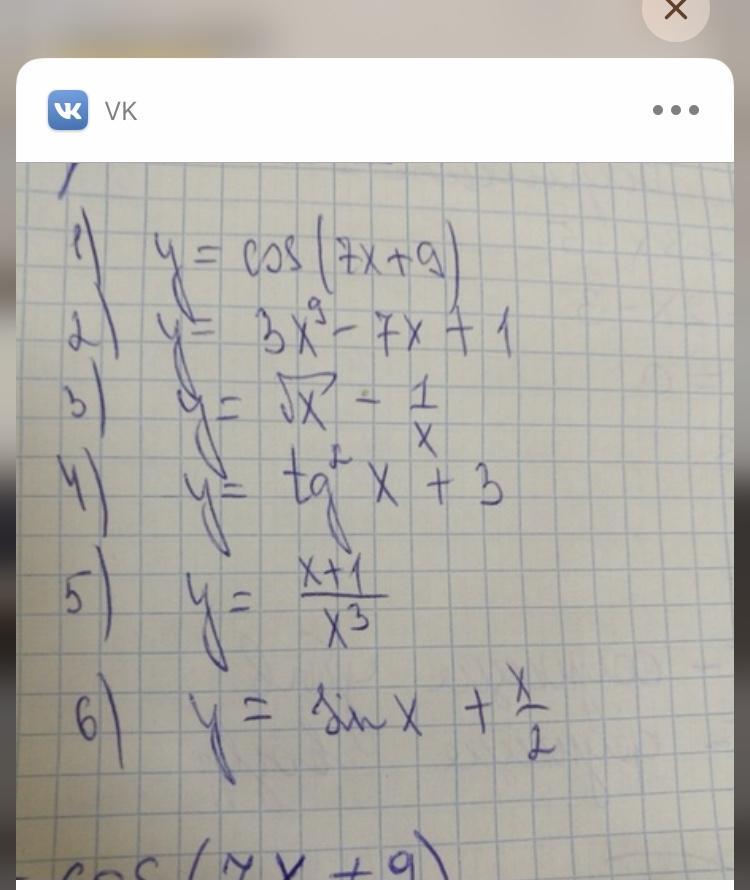 VK
1) y = cos(7x+9)
2) y = 3x⁹ - 7x + 1
3) y = √x - 1/x
4) y = tg² x + 3
5) y = x+1/x³
6) y = sin x + x/2
cos(7x+9)